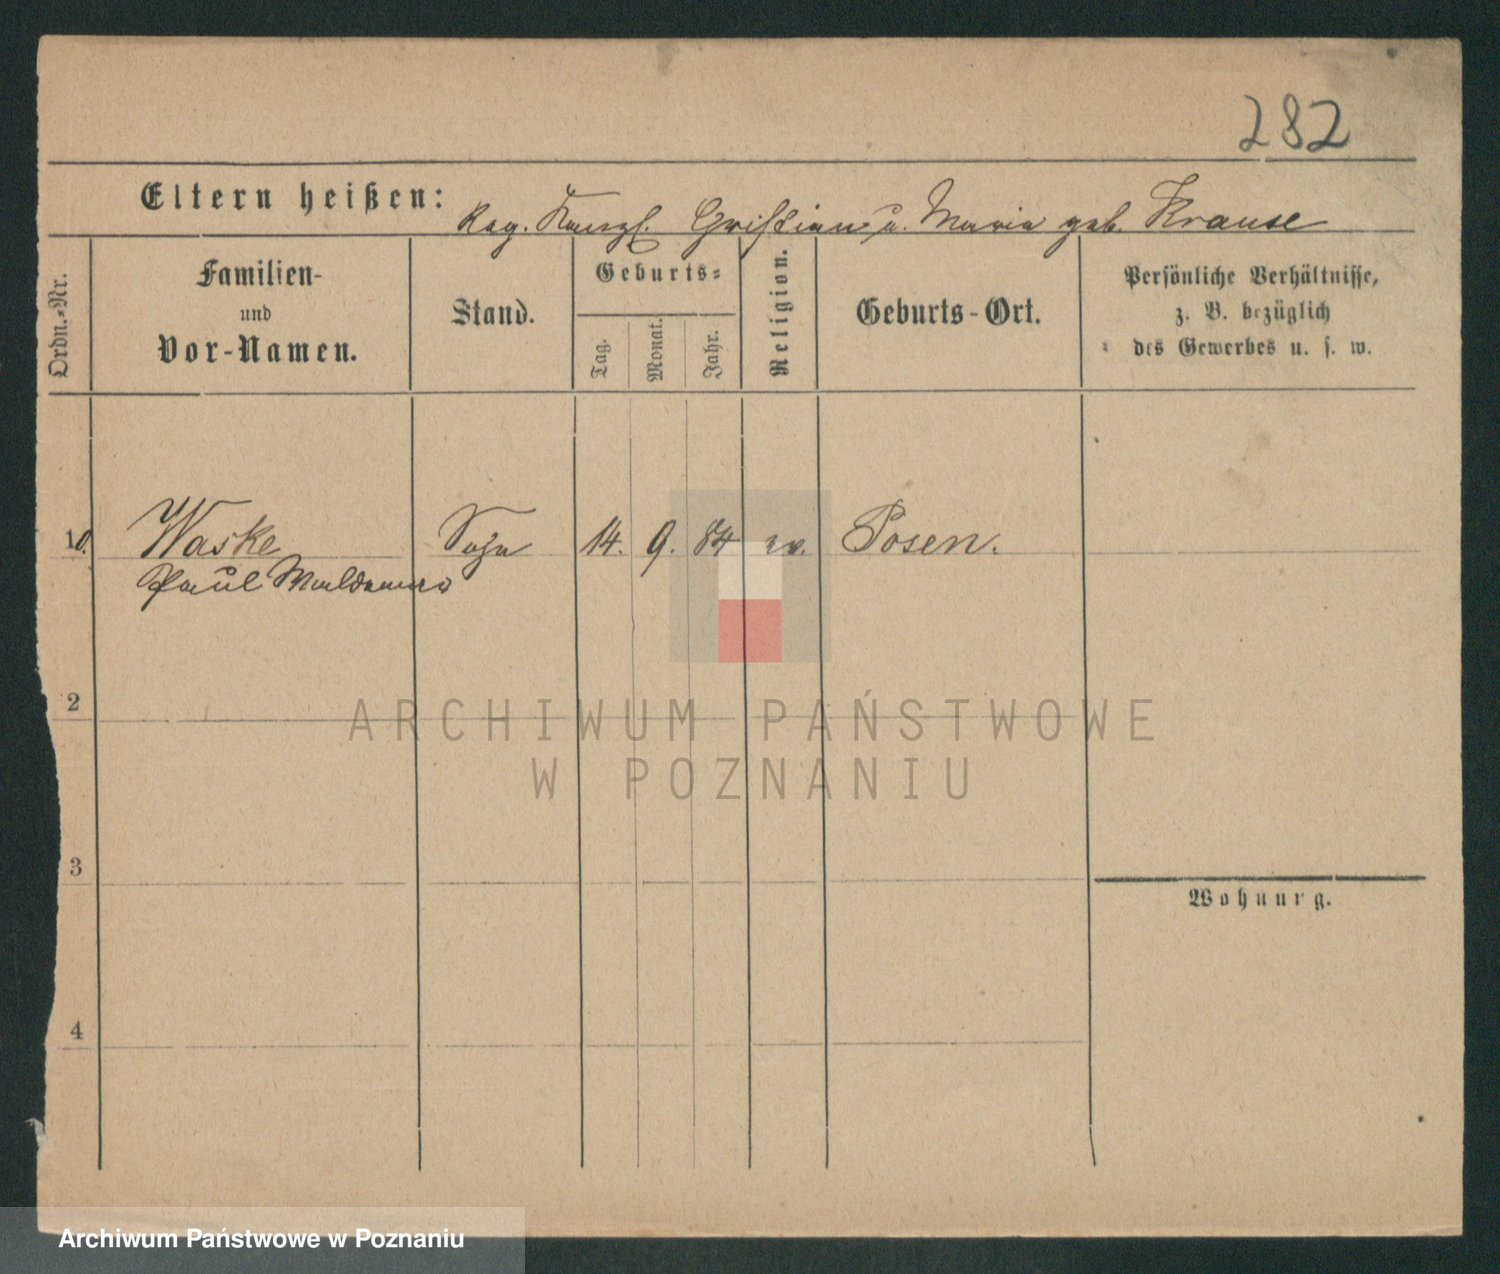 282
Eltern heißen: Reg. Kanzl. Christian u. Maria geb. Krause
Ordn.-Nr.
Familien-
und
Vor-Namen.
Stand.
Geburts-
Tag.
Monat.
Jahr.
Religion.
Geburts-Ort.
Persönliche Verhältnisse,
z. B. bezüglich
des Gewerbes u. s. w.
10. Waske Sohn 14. 9. 84 ev. Posen.
Paul Waldemar
2
3
4
Wohnung.
ARCHIWUM PAŃSTWOWE
W POZNANIU
Archiwum Państwowe w Poznaniu